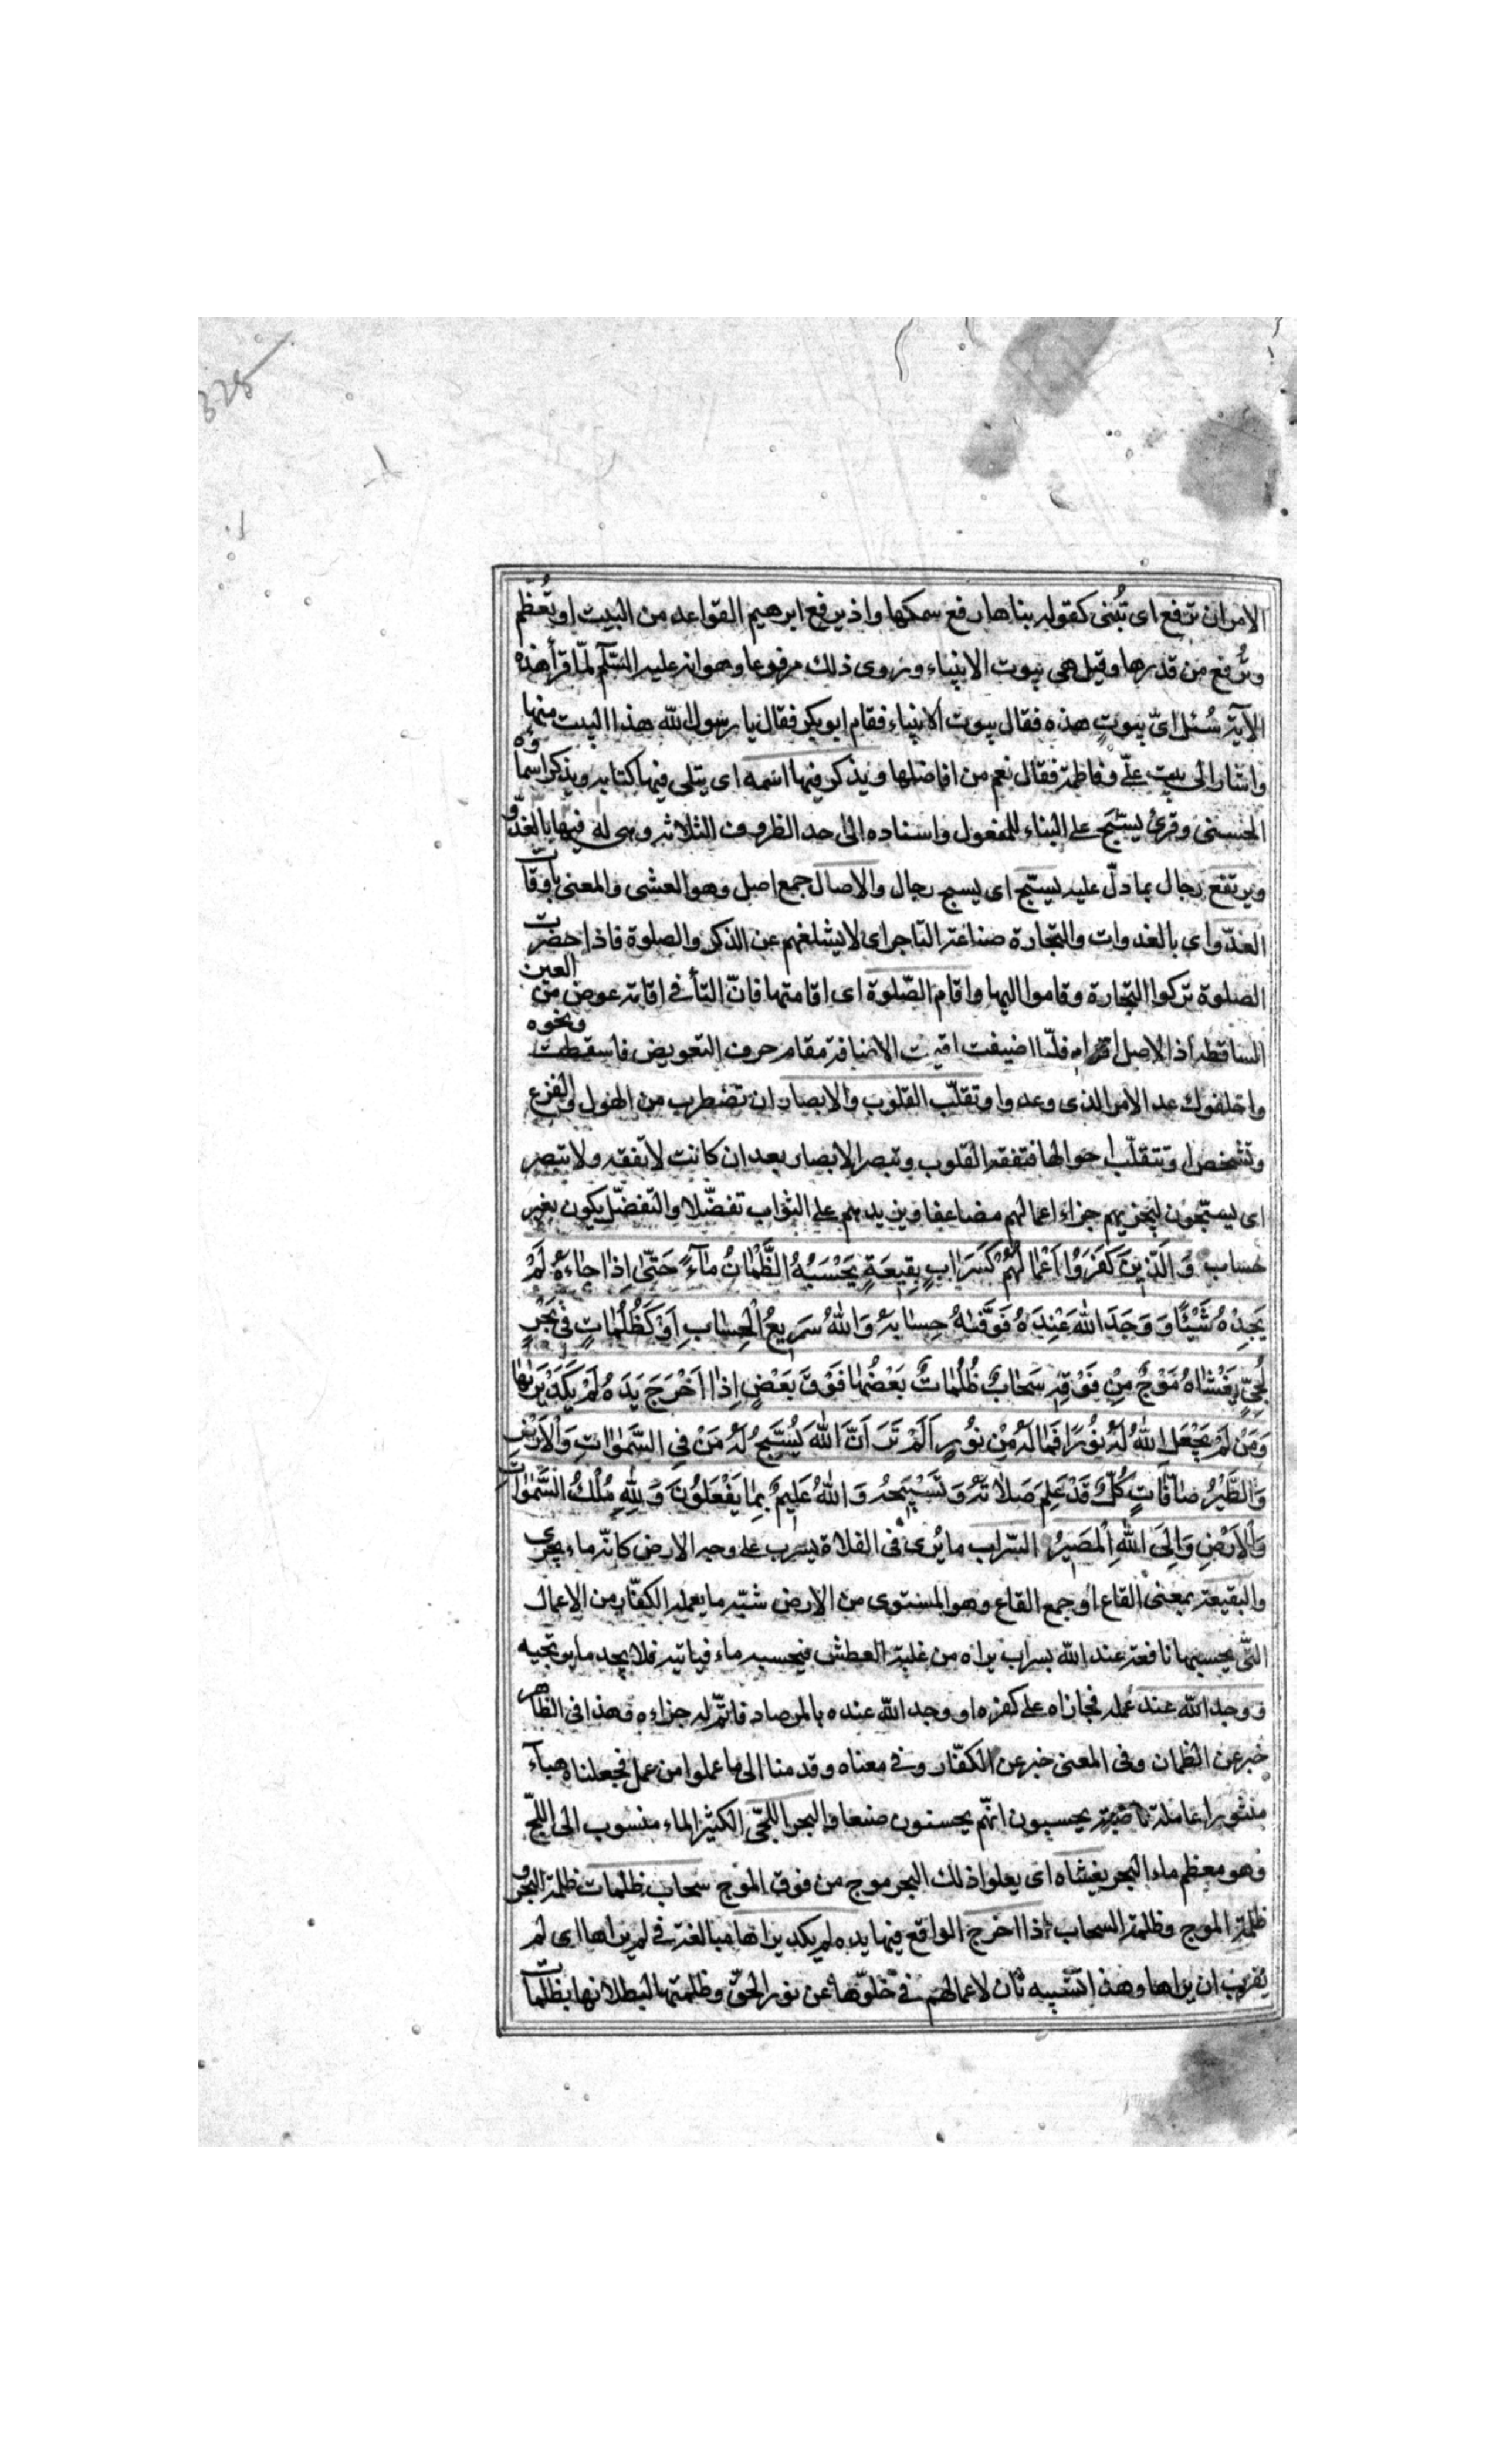 325
الامر ان ترفع اى تُبنى كقوله بناها رفع سمكها واذ يرفع ابرهيم القواعد من البيت او تُعظّم
وتُرفع من قدرها وقيل هى بيوت الانبياء وروى ذلك مرفوعا وهو انه عليه السّلم لمّا قرأ هذه
الآية سُئل اىّ بيوتٍ هذه فقال بيوت الانبياء فقام ابوبكر فقال يا رسول اللّه هذا البيت منها
واشار الى بيت علىّ وفاطمة فقال نعم من افاضلها ويذكر فيها اسمه اى يتلى فيها كتابه ويذكر اسماؤه
الحسنى وقرئ يسبّح على البناء للمفعول واسناده الى احد الظروف الثلاثه وهى له فيها بالغدوّ
ويرتفع رجال بما دلّ عليه يسبّح اى يسبح رجال والاصال جمع اصيل وهو العشى والمعنى باوقات
الغدّو اى بالغدوات والتجارة صناعة التاجر اى لا يشلغهم عن الذكر والصلوة فاذا حضرت
الصلوة تركوا التجارة وقاموا اليها واقام الصّلوة اى اقامتها فانّ التأ فى اقامة عوض من العين
الساقطه اذ الاصل اقوام فلمّا اضيفت اقيمت الاضافة مقام حرف التعويض فاسقطت ونحوه
واخلفوك عد الامر الذى وعدوا وتتقلّب القلوب والابصار ان تضطرب من الهول والفزع
وتشخص او تتقلّب احوالها فتفقه القلوب وتبصر الابصار بعد ان كانت لا تفقه ولا تبصر
اى يسبّحون ليجزيهم جزاء اعمالهم مضاعفا ويزيدهم على الثواب تفضّلا والتفضّل يكون بغير
حساب وَالَّذِينَ كَفَرَوُا اَعْمٰالُهُمْ كَسَرٰابٍ بِقِيعَةٍ يَحْسَبُهُ الظَّمْاٰنُ مٰآءً حَتّىٰ اِذٰا جٰاءَهُ لَمْ
يَجِدْهُ شَيْئًا وَ وَجَدَ اللّٰهَ عَنْدِهُ فَوَفّٰيٰهُ حِسٰابَهُ وَاللّٰهُ سَرِيعُ الْحِسٰابِ اَوْ كَظُلُمٰاتٍ فى بَحْرٍ
لُجِّىٍّ يَغْشٰاهُ مَوْجٌ مِنْ فَوْقِهِ سَحٰابٌ ظُلُمٰاتٌ بَعْضُهٰا فَوْقَ بَعْضٍ اِذٰا اَخْرَجَ يَدَهُ لَمْ يَكَدْ يَرٰىهٰا
وَمَنْ لَمْ يَجْعَلِ اللّٰهُ لَهُ نُورًا فَمٰا لَهُ مِنْ نُورٍ اَلَمْ تَرَ اَنَّ اللّٰهَ يُسَبِّحُ لَهُ مَنْ فِى السَّمٰوٰاتِ وَالْاَرْضِ
وَالطَّيْرُ صٰافّٰاتٍ كُلٌّ قَدْ عَلِمَ صَلٰاتَهُ وَتَسْبِيحَهُ وَاللّٰهُ عَلِيمٌ بِمٰا يَفْعَلُونَ وَلِلّٰهِ مُلْكُ السَّمٰوٰاتِ
وَالْاَرْضِ وَاِلَى اللّٰهِ الْمَصيرُ السّراب ما يُرى فى الفلاة يسرب على وجه الارض كانّه ماء يجرى
والبقيعة بمعنى القاع او جمع القاع وهو المستوى من الارض شبّه ما يعمله الكفّار من الاعمال
التّى يحسبها نافعة عند اللّه بسراب يراه من غلبة العطش فيحسبه ماء فياتيه فلا يجد ما يرتجيه
ووجد اللّه عند عمله فجازاه على كفره او وجد اللّه عنده بالمرصاد فاتمّ له جزاءه وهذا فى الظاهر
خبر عن الظمان وفى المعنى خبر عن الكفّار وفى معناه وقدمنا الى ما عملوا من عمل فجعلناه هبآء
منثورا عاملة ناصبة يحسبون انّهم يحسنون صنعا والبحر اللجّى الكثير الماء منسوب الى اللجّ
وهو معظم ماء البحر يغشاه اى يعلوا ذلك البحر موج من فوق الموج سحاب ظلمات ظلمة البحر و
ظلمة الموج وظلمة السحاب اذا اخرج الواقع فيها يده لم يكد يراها مبالغة فى لم يراها اى لم
يقرب ان يراها وهذا تشبيه ثان لاعمالهم فى خلوّها عن نور الحقّ وظلمتها لبطلانها بظلمات